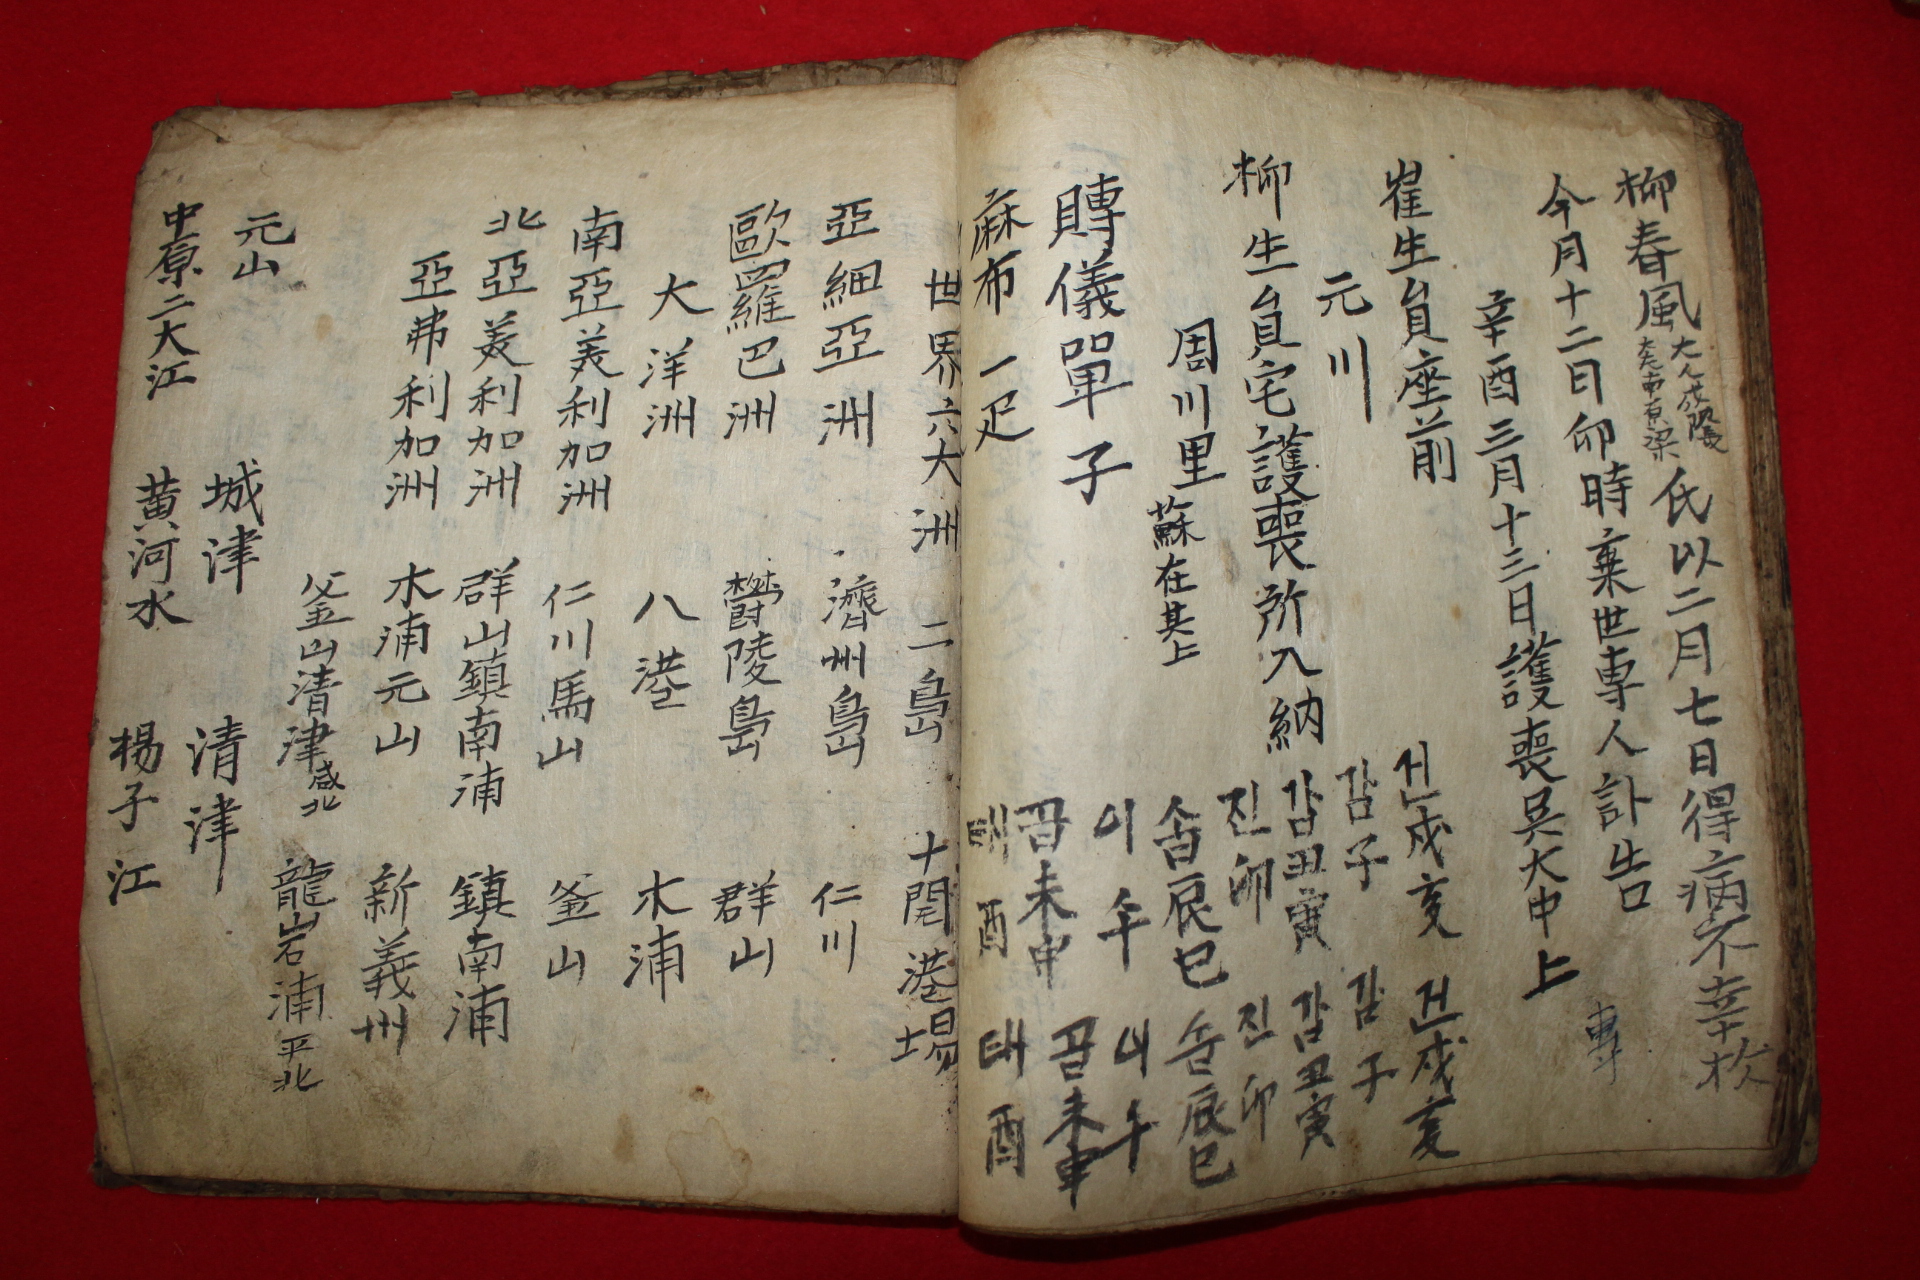 柳春風大人世隊大老南原梁氏以二月七日得病不幸於
今月十二日卯時棄世専人訃告
専
辛酉三月十三日護喪吳大中上
崔生員座前
元川
柳生員宅護喪所入納
周川里蘇在其上
賻儀單子
麻布一疋
건戌亥 건戌亥
감子 감子
감丑寅 감丑寅
진卯 진卯
손辰巳 손辰巳
이午 이午
곤未申 곤未申
태酉 태酉
世界六大洲 二島 十開港場
亞細亞洲 濟州島 仁川
歐羅巴洲 鬱陵島 群山
大洋洲 八港 木浦
南亞美利加洲 仁川馬山 釜山
北亞美利加洲 群山鎮南浦 鎮南浦
亞弗利加洲 木浦元山 新義州
釜山清津咸北 龍岩浦平北
元山 城津 清津
中原二大江 黄河水 楊子江